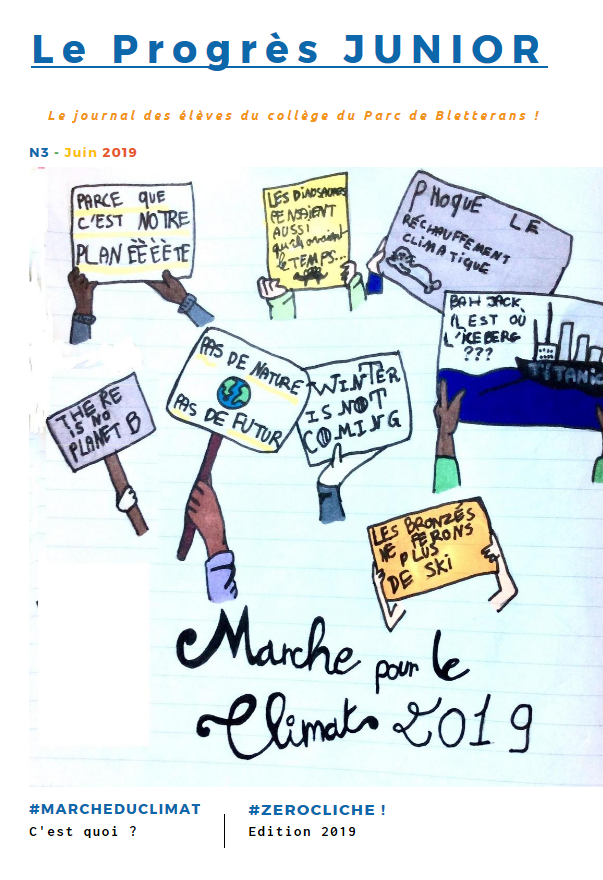 Le Progrès JUNIOR
Le journal des élèves du collège du Parc de Bletterans !
N3 - Juin 2019
PARCE QUE
C'EST NOTRE
PLANÈÈÈÈTE
LES DINOSAURES
PENSAIENT
AUSSI
qu'ils avaient
le TEMPS...
PHOQUE LE
RÉCHAUFFEMENT
CLIMATIQUE
BAH JACK
IL EST OÙ
L'ICEBERG
???
TITANIC
THERE
IS NO
PLANET B
PAS DE NATURE
PAS DE FUTUR
WINTER
IS NOT
COMING
LES BRONZÉS
NE FERONS
PLUS
DE SKI
Marche pour le
Climat 2019
#MARCHEDUCLIMAT
C'est quoi ?
#ZEROCLICHE !
Edition 2019